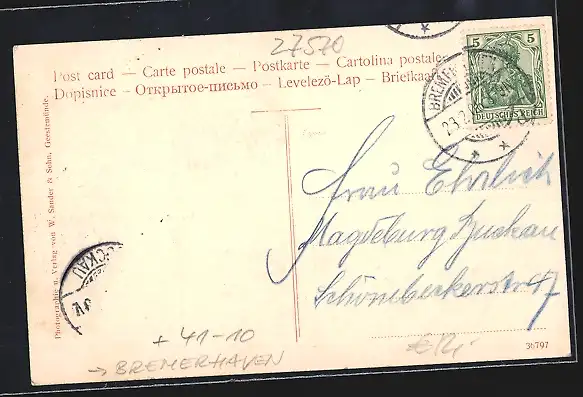 27570
Post card — Carte postale — Postkarte — Cartolina postale
Dopisnice — Открытое-письмо — Levelező-Lap — Briefkaa
5 5
DEUTSCHES REICH
BREME
23.2.
Frau Ehrlich
Magdeburg Buckau
Schönebeckerstr 47
Photographie u. Verlag von W. Sander & Sohn, Geestemünde.
CKAU
+ 41-10
→ BREMERHAVEN
€12,-
36797